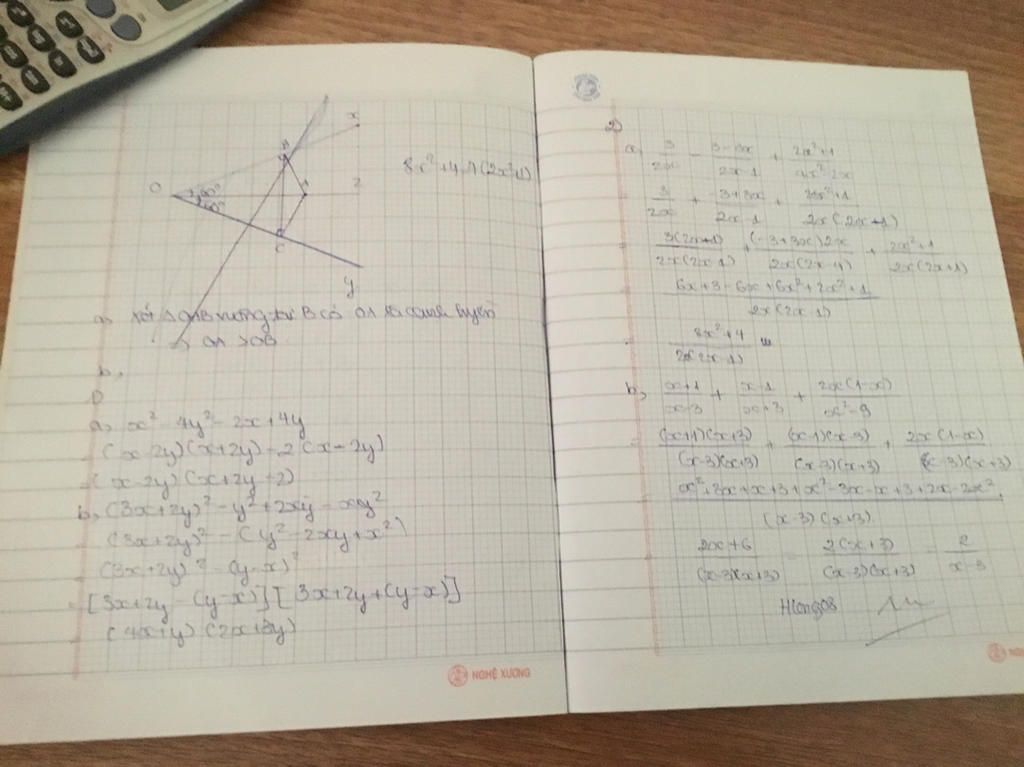 x
B
8x²+4 4(2x²+1)
O
60°
A
z
60°
C
y
a) Xét ΔOAB vuông tại B có OA là cạnh huyền
=> OA > OB
b,
1)
a, x² - 4y² - 2x + 4y
(x-2y)(x+2y) - 2(x-2y)
(x-2y)(x+2y-2)
b, (3x+2y)² - y² + 2xy - x²
(3x+2y)² - (y² - 2xy + x²)
(3x+2y)² - (y-x)²
= [3x+2y - (y-x)][3x+2y+(y-x)]
(4x+y)(2x+3y)
NGHỆ XƯƠNG
2)
a, 3/2x - 3-3x/2x-1 + 2x²+1/4x²-2x
3/2x + -3+3x/2x-1 + 2x²+1/2x(2x+1)
= 3(2x+1)/2x(2x-1) + (-3+3x)2x/2x(2x-1) + 2x²+1/2x(2x+1)
6x+3-6x+6x²+2x²+1/2x(2x-1)
= 8x²+4/2x(2x-1)
b, x+1/x-3 + x-1/x+3 + 2x(1-x)/x²-9
= (x+1)(x+3)/(x-3)(x+3) + (x-1)(x-3)/(x-3)(x+3) + 2x(1-x)/(x-3)(x+3)
x²+3x+x+3+x²-3x-x+3+2x-2x²/(x-3)(x+3)
2x+6/(x-3)(x+3) = 2(x+3)/(x-3)(x+3) = 2/x-3
Hlong08